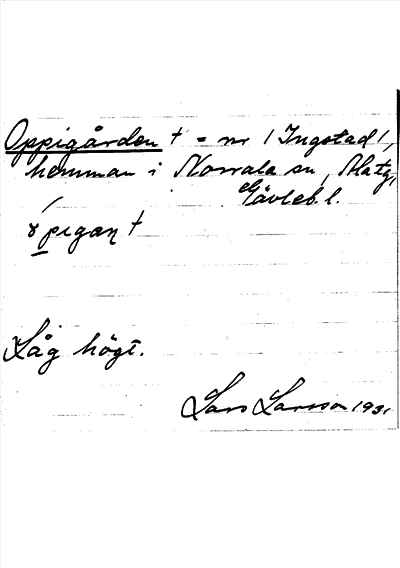 Oppigården † = nr 1 Ingstad 1,
hemman i Norrala sn,
Gävleb. l.
pigaṇ †
Låg högt.
Lars Larsson 1931